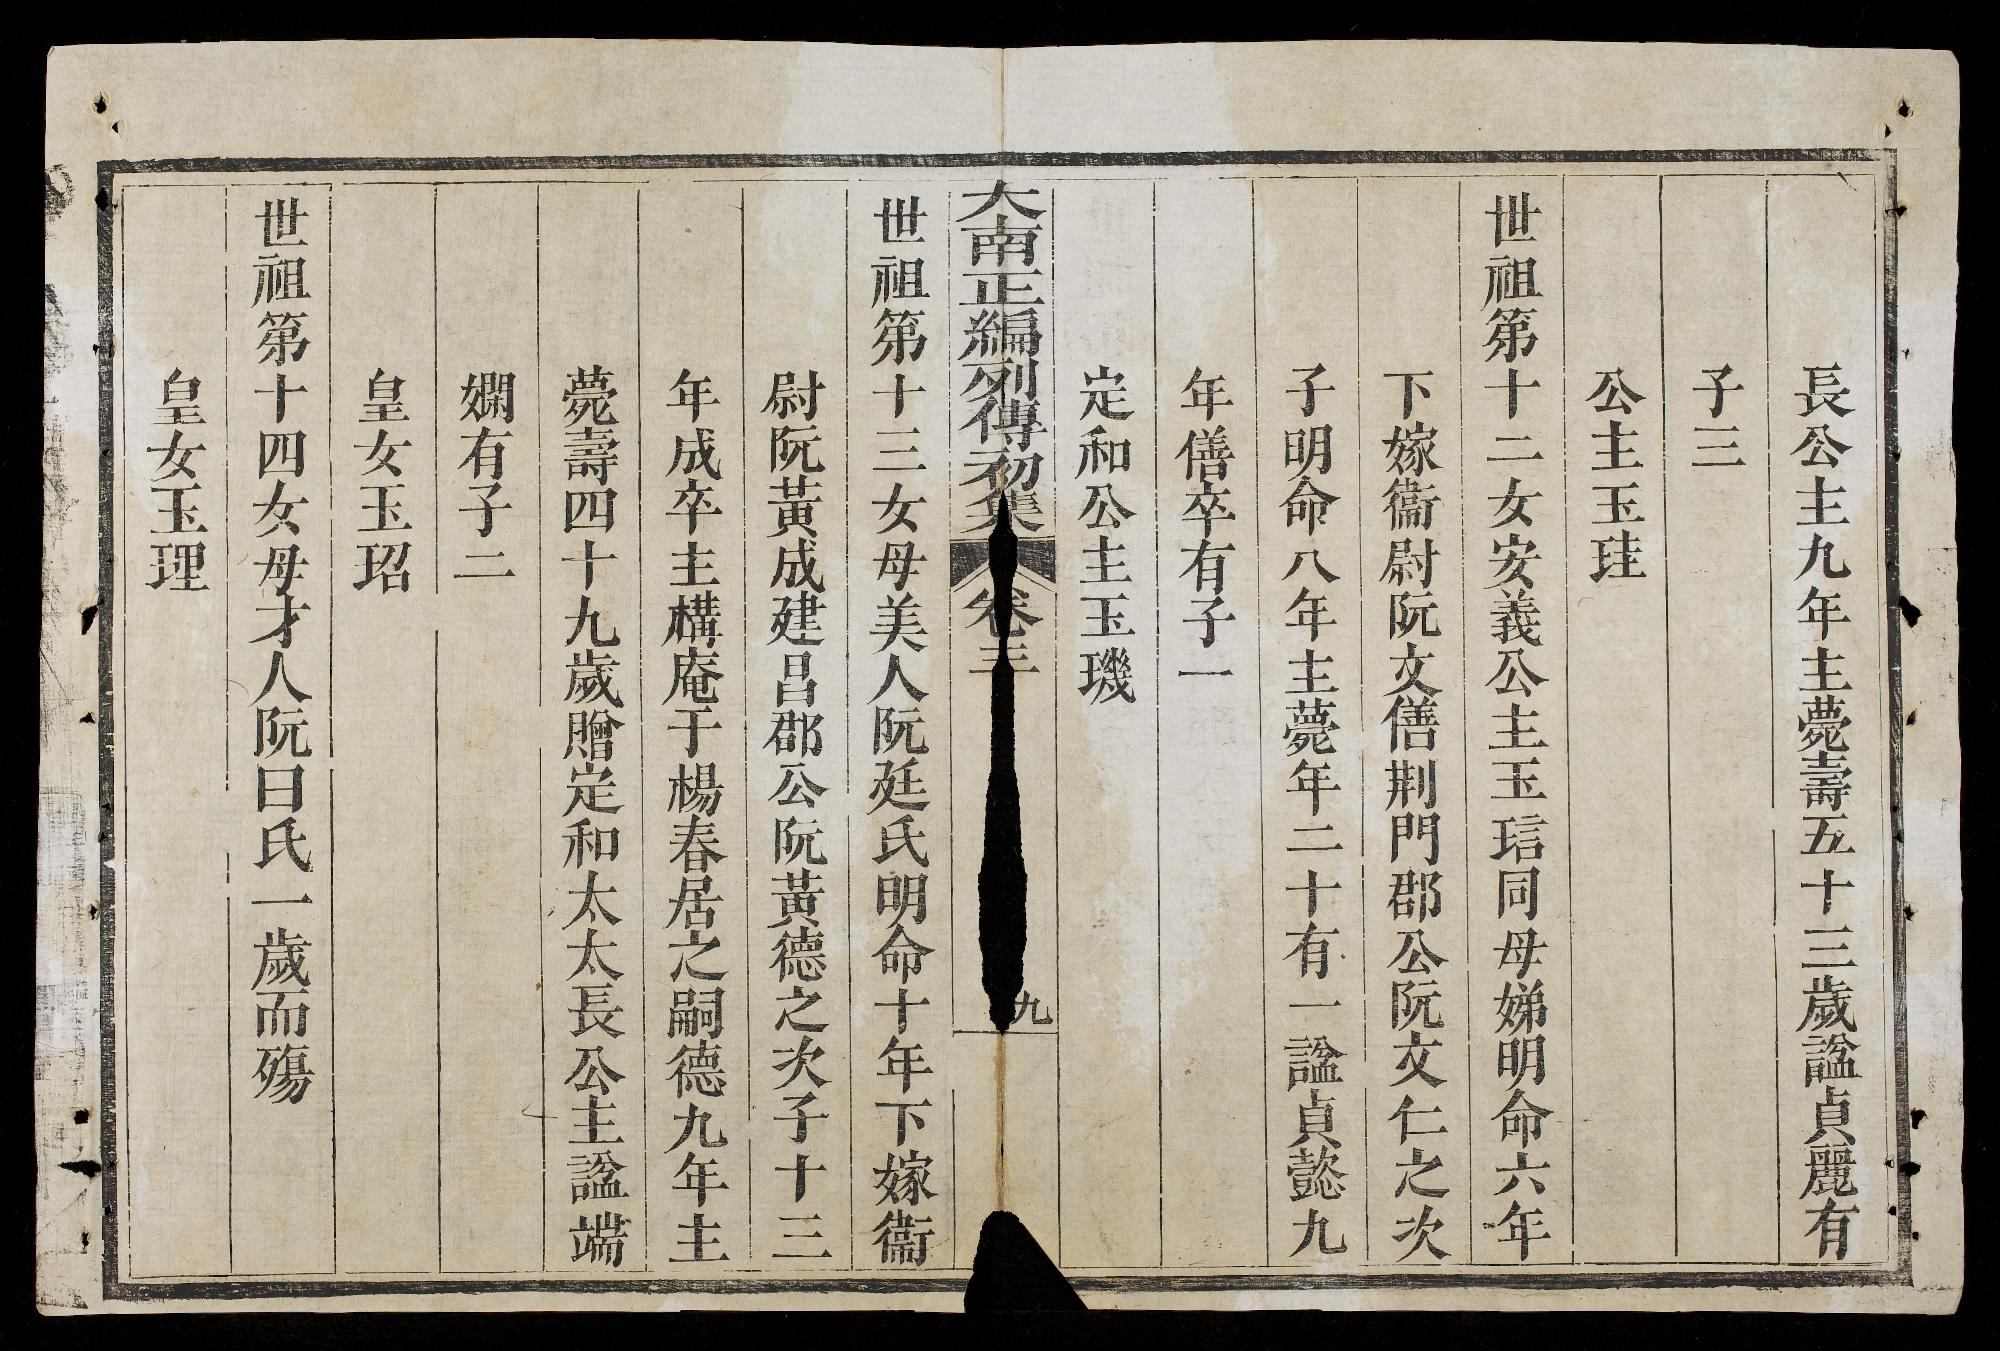 長公主九年主薨壽五十三歲諡貞麗有
子三
公主玉珪
世祖第十二女安義公主玉琂同母娣明命六年
下嫁衞尉阮文僐荆門郡公阮文仁之次
子明命八年主薨年二十有一諡貞懿九
年僐卒有子一
定和公主玉璣
大南正編列傳初集 卷三 九
世祖第十三女母美人阮廷氏明命十年下嫁衞
尉阮黃成建昌郡公阮黃德之次子十三
年成卒主構庵于楊春居之嗣德九年主
薨壽四十九歲贈定和太太長公主諡端
嫻有子二
皇女玉玿
世祖第十四女母才人阮曰氏一歲而殤
皇女玉理